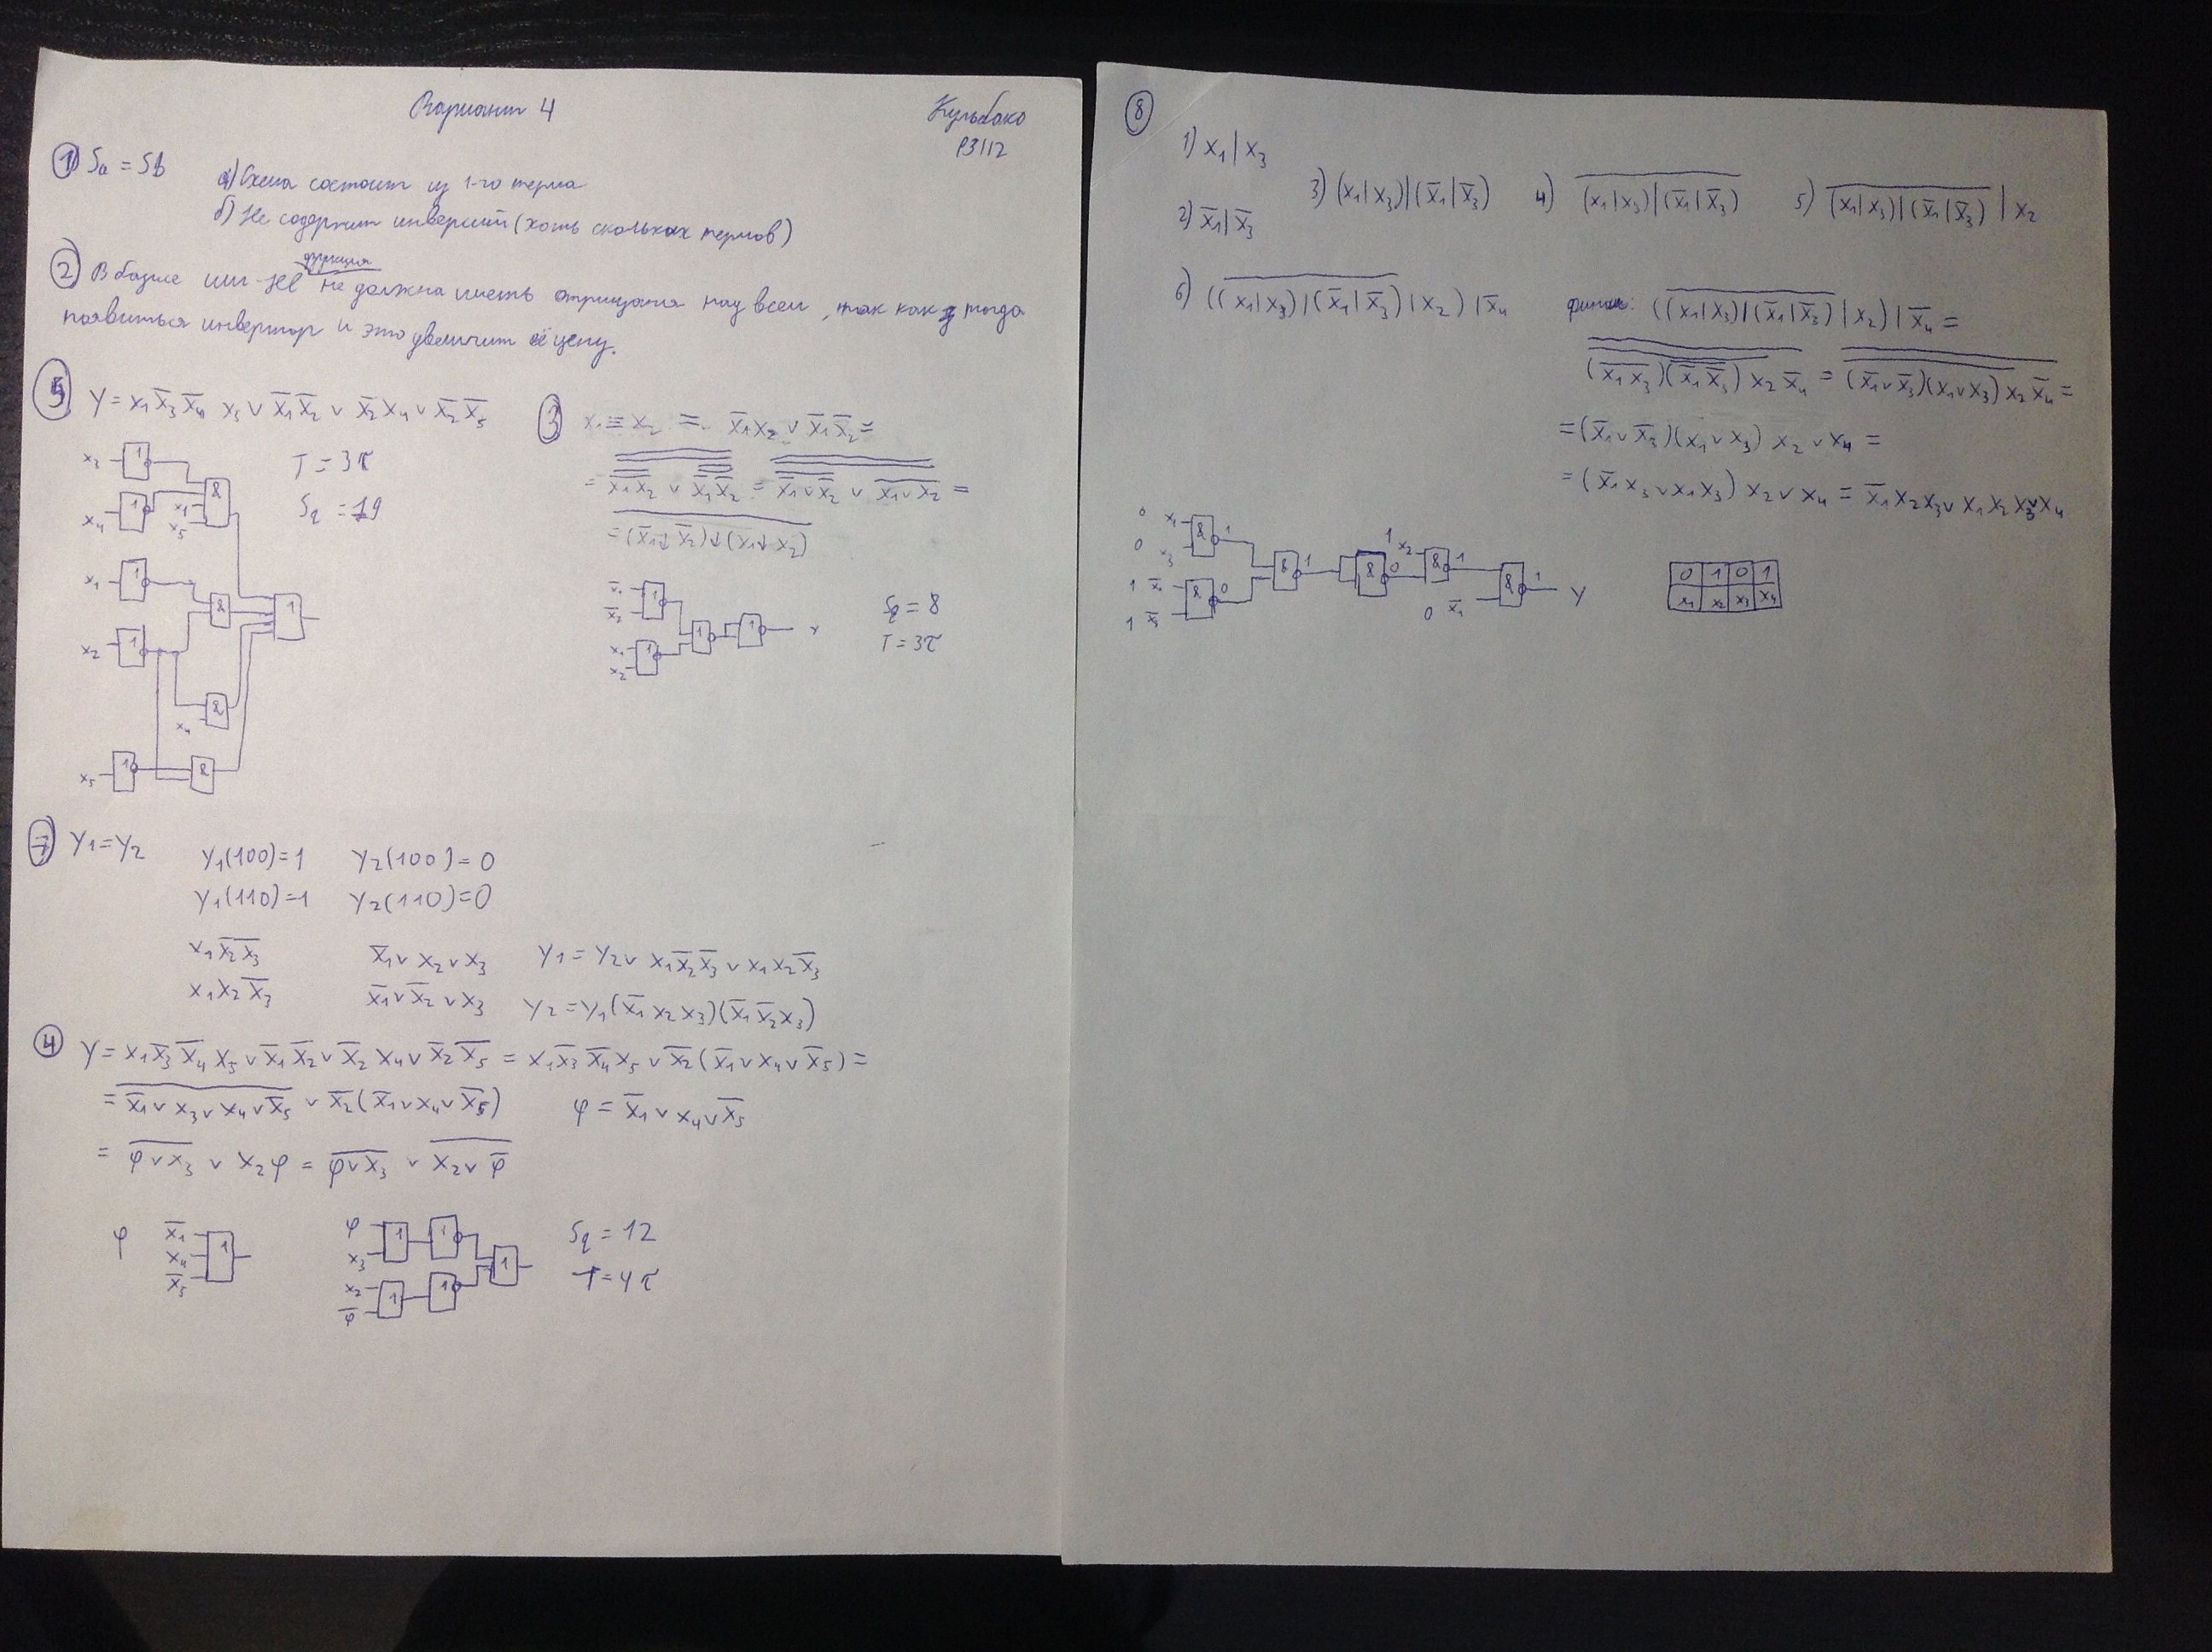 Вариант 4
Кульбако
P3112
① Sa = Sb
а) Схема состоит из 1-го терма
б) Не содержит инверсий (хоть скольких термов)
② В базисе или-не функция не должна иметь отрицания над всем, так как тогда
появиться инвертор и это увеличит её цену.
⑤ Y = x₁x̅₃x̅₄ x₅ ∨ x̅₁x̅₂ ∨ x̅₂x₄ ∨ x̅₂x̅₅
x₃ 1
x₄ 1
x₁
x₅ &
x₁ 1
&
x₂ 1
1
x₄ &
x₅ 1 &
T = 3τ
Sq = 19
③ x₁ ≡ x₂ = x₁x₂ ∨ x̅₁x̅₂ =
= (x̅₁↓x̅₂)↓(x₁↓x₂)
x̅₁
x̅₂ 1
x₁
x₂ 1
1 1 Y
Sq = 8
T = 3τ
⑦ Y₁=Y₂
Y₁(100)=1 Y₂(100)=0
Y₁(110)=1 Y₂(110)=0
x₁x̅₂x̅₃ x̅₁∨x₂∨x₃ Y₁ = Y₂∨ x₁x̅₂x̅₃ ∨ x₁x₂x̅₃
x₁x₂x̅₃ x̅₁∨x̅₂∨x₃ Y₂ = Y₁(x̅₁ x₂x₃)(x̅₁ x̅₂x₃)
④ Y = x₁x̅₃x̅₄x₅ ∨ x̅₁x̅₂ ∨ x̅₂x₄ ∨ x̅₂x̅₅ = x₁x̅₃x̅₄x₅ ∨ x̅₂(x̅₁∨x₄∨x̅₅) =
= \overline{x̅₁∨x₃∨x₄∨x̅₅} ∨ x̅₂(x̅₁∨x₄∨x̅₅) φ = x̅₁∨x₄∨x̅₅
= \overline{φ∨x₃} ∨ x₂φ = \overline{φ∨x₃} ∨ \overline{x₂∨φ̅}
φ x̅₁
x₄
x̅₅ 1
φ
x₃ 1 1
x₂
φ̅ 1 1
1
Sq = 12
T = 4τ
⑧
1) x₁|x₃
2) x̅₁|x̅₃
3) (x₁|x₃)|(x̅₁|x̅₃)
4) \overline{(x₁|x₃)|(x̅₁|x̅₃)}
5) \overline{(x₁|x₃)|(x̅₁|x̅₃)} | x₂
6) (\overline{(x₁|x₃)|(x̅₁|x̅₃)}|x₂)|x̅₄
финал: (\overline{(x₁|x₃)|(x̅₁|x̅₃)}|x₂)|x̅₄ =
= (x̅₁∨x̅₃)(x₁∨x₃) x₂ ∨ x₄ =
= (x̅₁x₃∨x₁x₃) x₂∨x₄ = x̅₁x₂x₃∨x₁x₂x₃∨x₄
0 x₁
0 x₃ & 1
1 x̅₁
1 x̅₃ & 0
& 1
& 0
1 x₂ & 1
0 x̅₁ & 1 Y
0 1 0 1
x₁ x₂ x₃ x₄